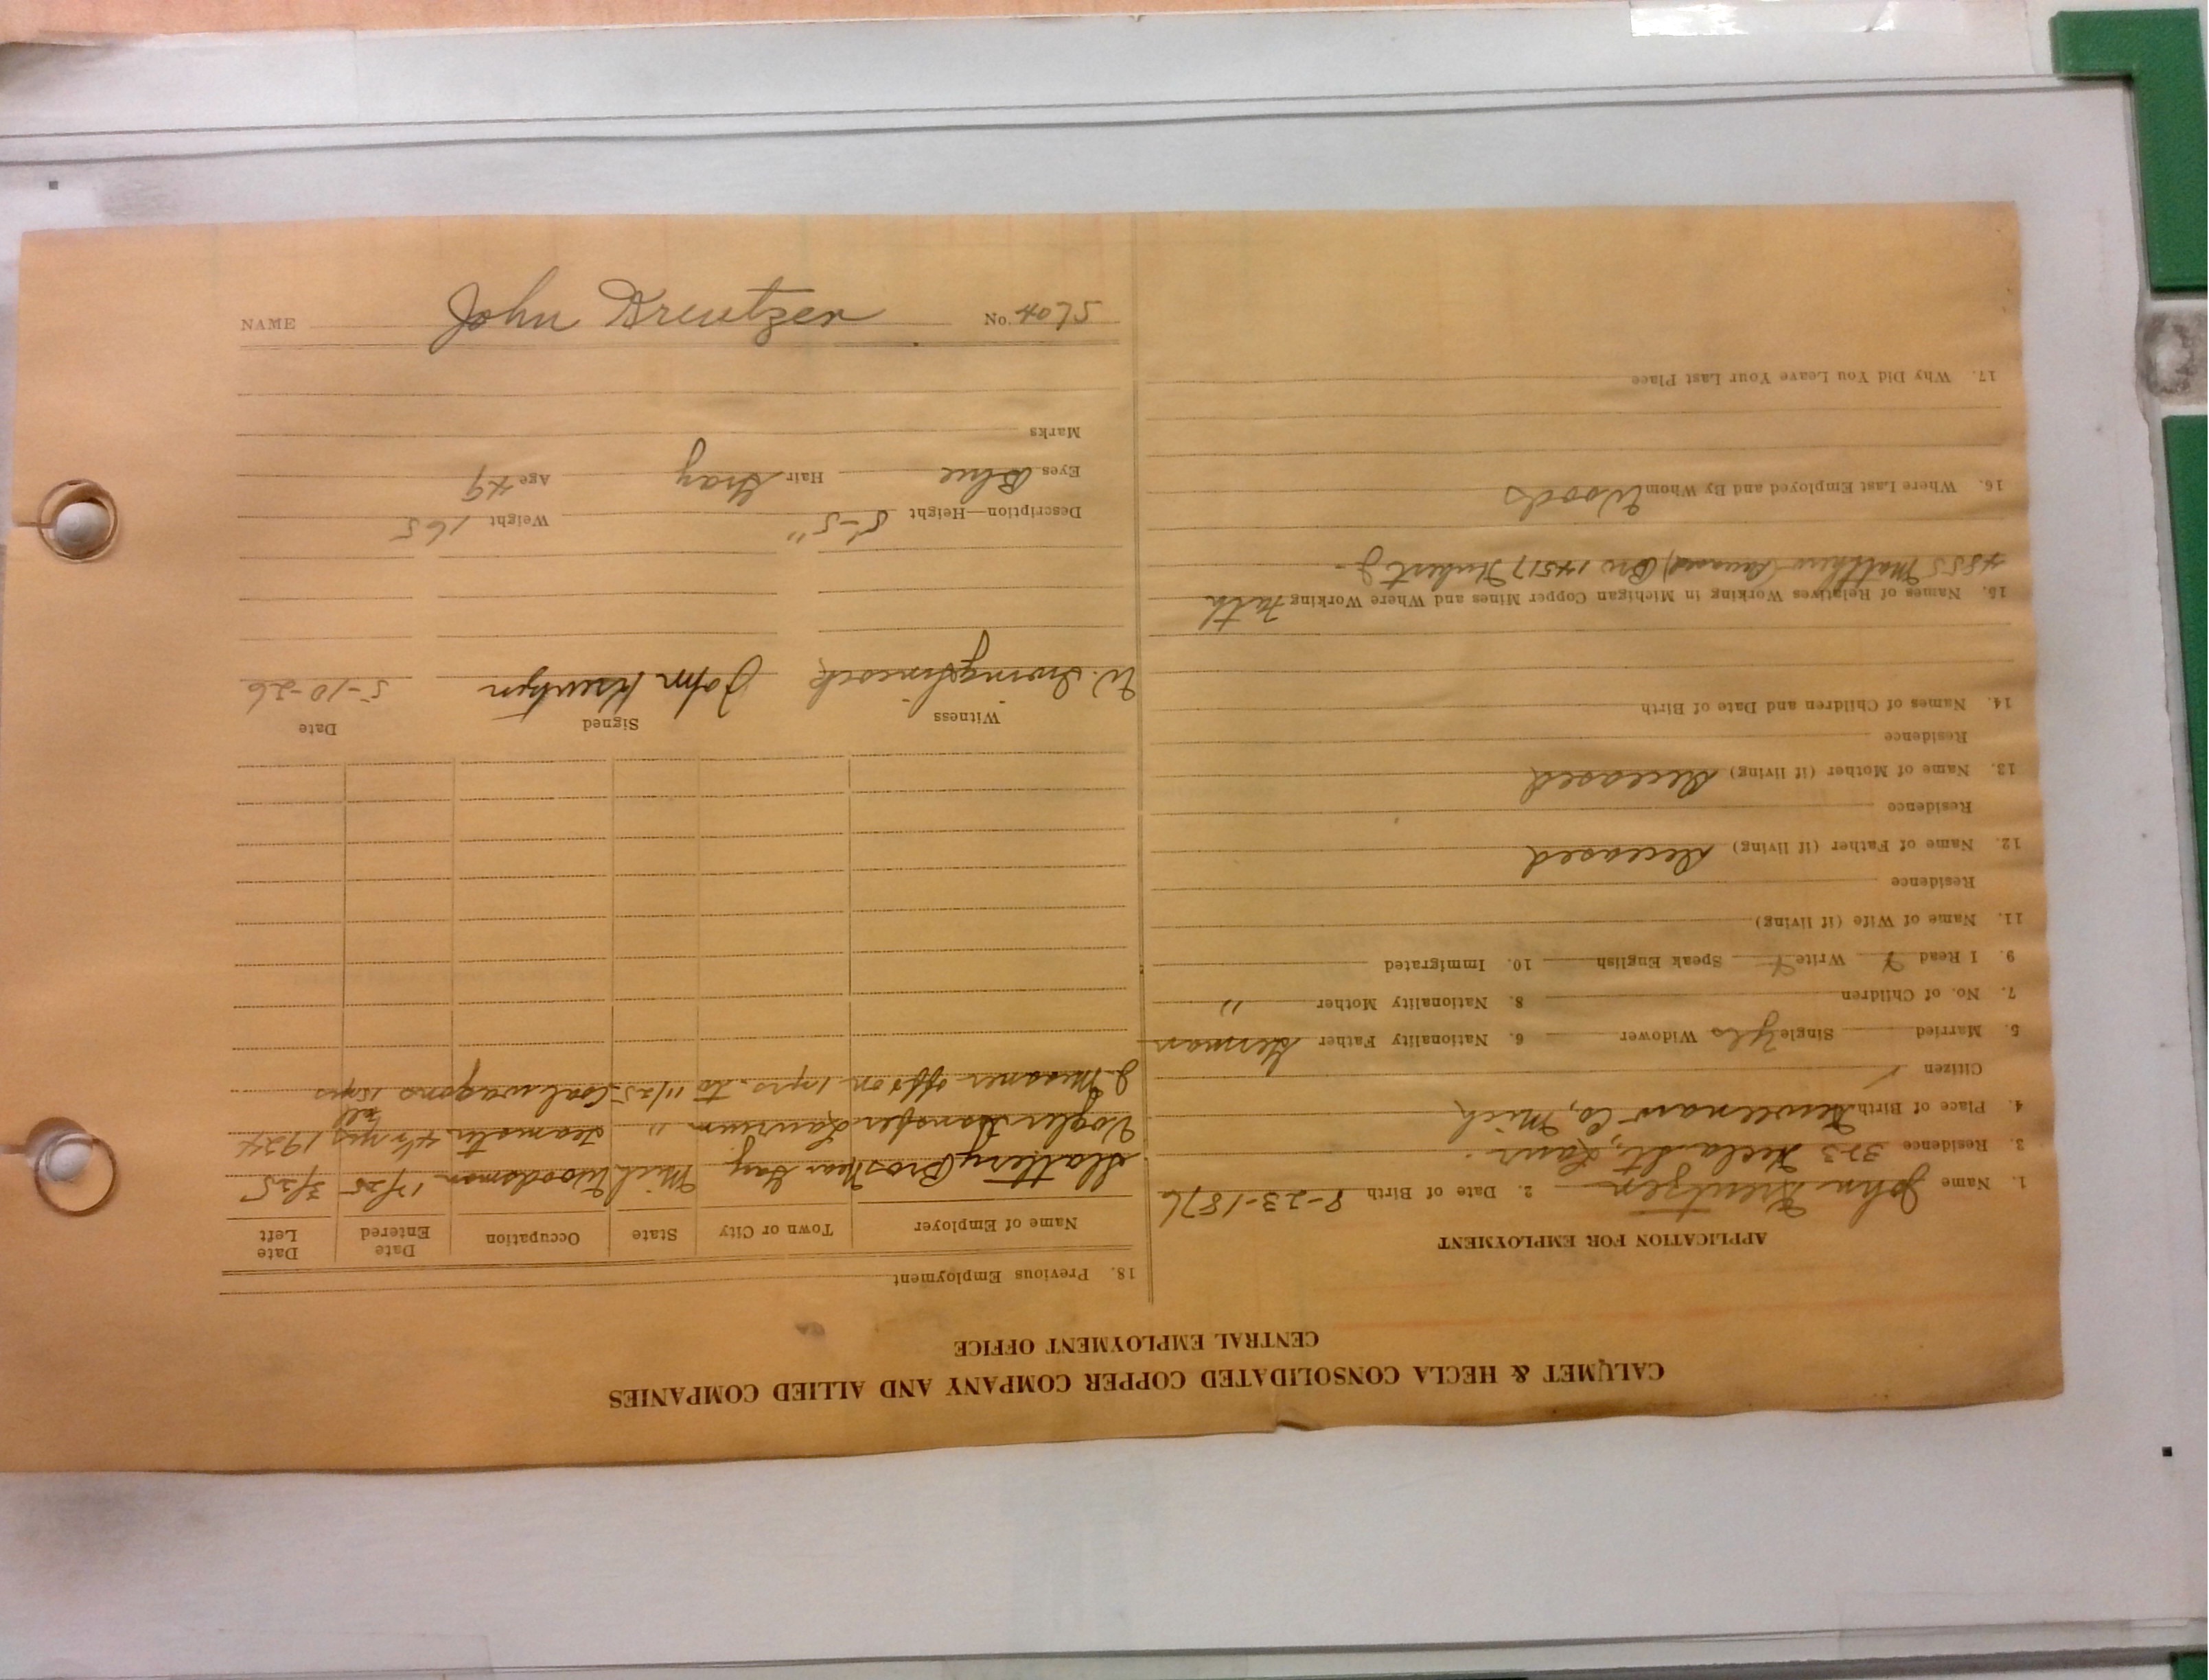 CALUMET & HECLA CONSOLIDATED COPPER COMPANY AND ALLIED COMPANIES
CENTRAL EMPLOYMENT OFFICE
APPLICATION FOR EMPLOYMENT
1. Name John Kreutzer 2. Date of Birth 8-23-1876
3. Residence 323 Hecla St, Laur.
4. Place of Birth Keweenaw Co, Mich
Citizen /
5. Married Single Yes Widower 6. Nationality Father German
7. No. of Children 8. Nationality Mother "
9. I Read Y Write Y Speak English 10. Immigrated
11. Name of Wife (if living)
Residence
12. Name of Father (if living) Deceased
Residence
13. Name of Mother (if living) Deceased
Residence
14. Names of Children and Date of Birth
15. Names of Relatives Working in Michigan Copper Mines and Where Working Fath
4855 Matthew (deceased) Bro 14517 Hubert J-
16. Where Last Employed and By Whom Woods
17. Why Did You Leave Your Last Place
18. Previous Employment
Name of Employer Town or City State Occupation Date Entered Date Left
Slattery Bros Near Gay. Mich Woodsman 1/25 3/25
Vogler Transfer Laurium " teamster 4½ yrs fall 1924
J. Messner off & on 15 yrs. to 11/25 Coal wagons 15 yrs
Witness Signed Date
W. Irving John Kreutzer 5-10-26
Description—Height 5-5" Weight 165
Eyes Blue Hair Gray Age 49
Marks
NAME John Kreutzer No. 4075